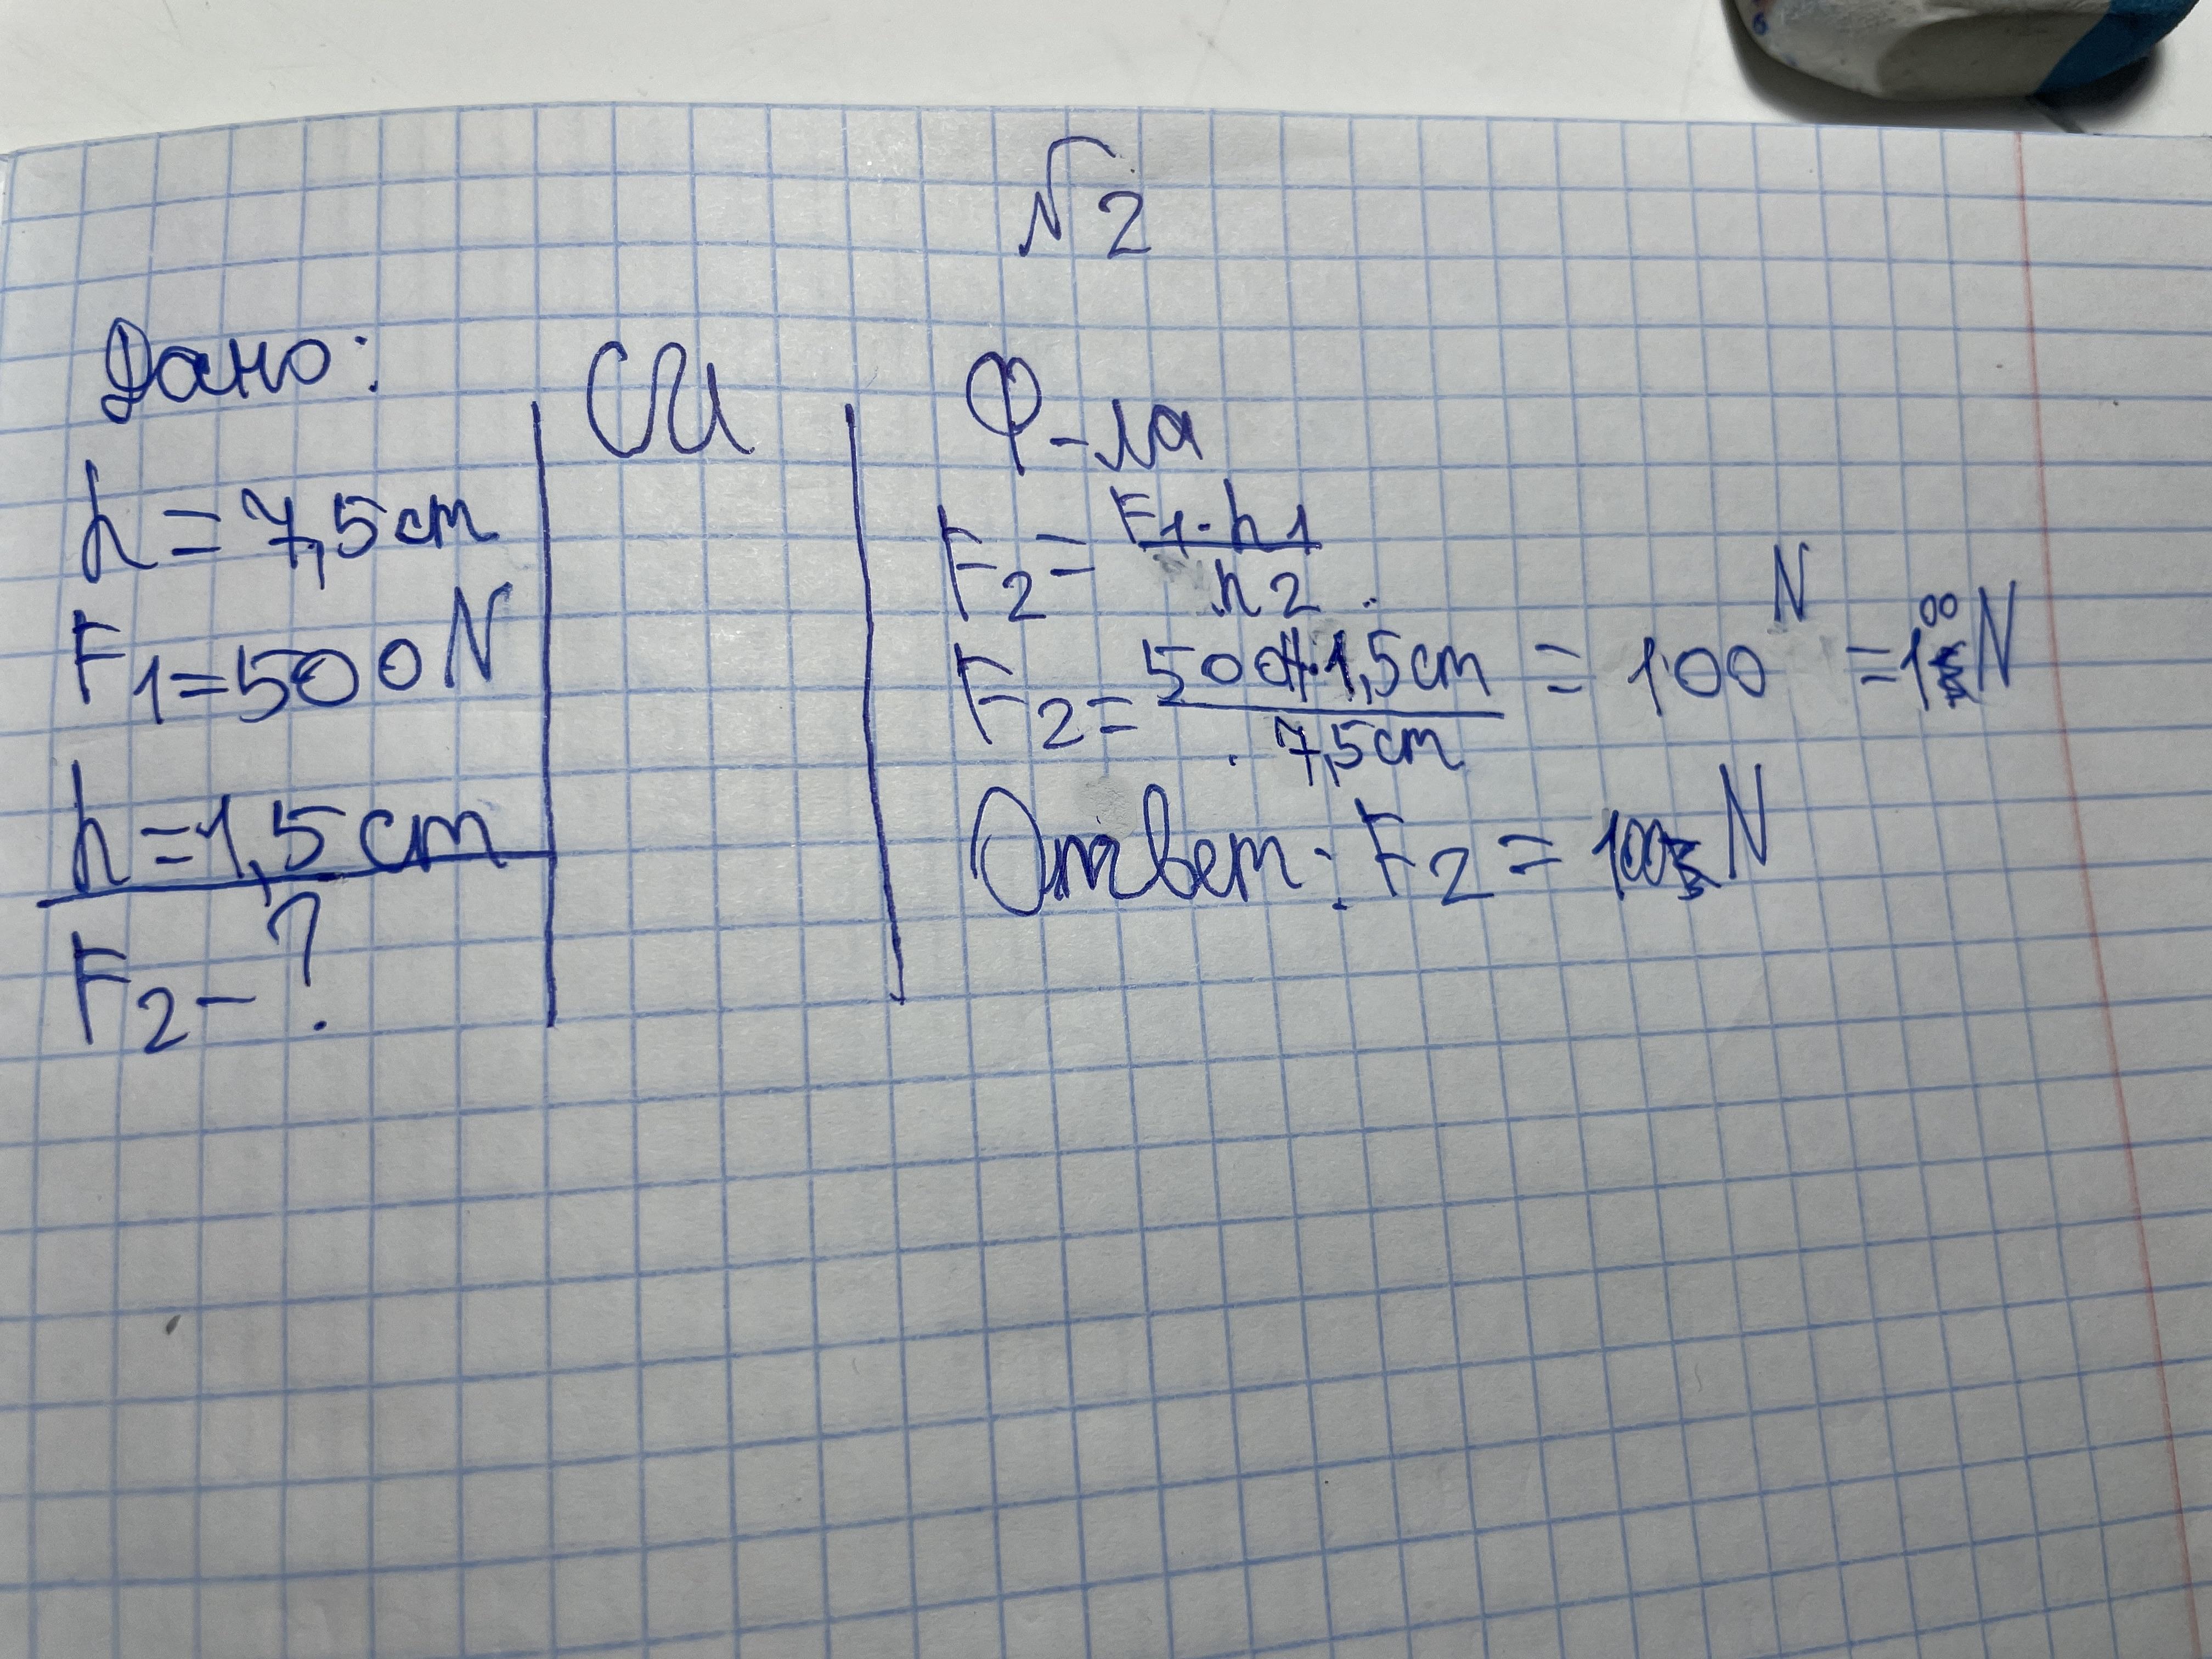 №2
Дано:
h = 7,5 cm
F1 = 500 N
h = 1,5 cm
F2 - ?
СИ
Ф-ла
F2 = F1 · h1 / h2
F2 = 500H·1,5 cm / 7,5 cm = 100 N = 100 N
Ответ: F2 = 100 N